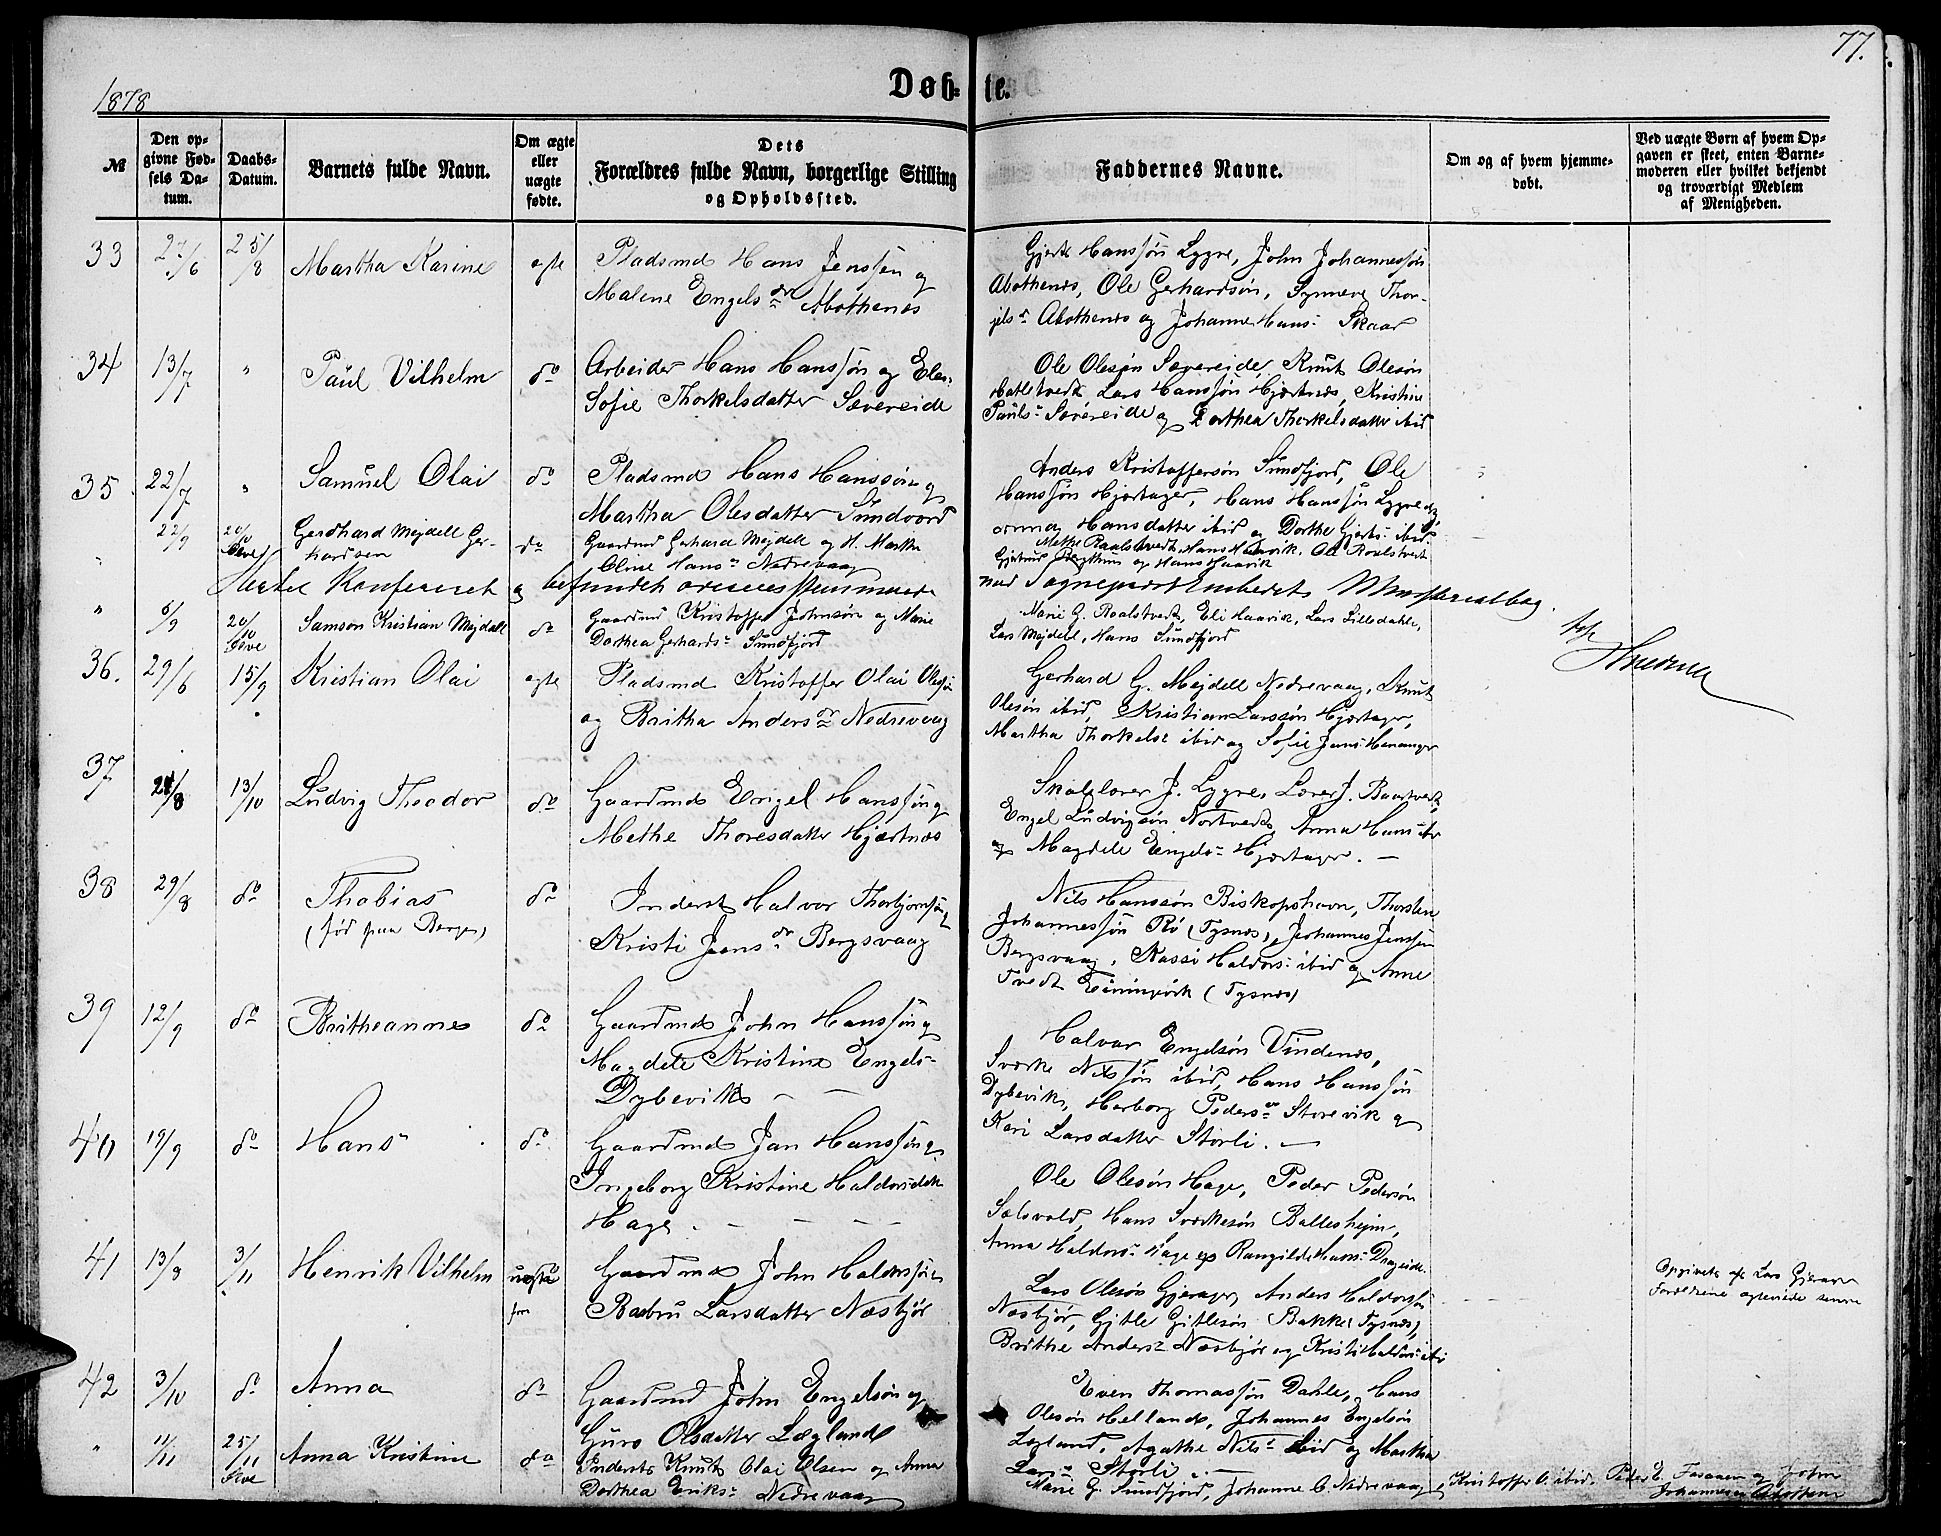 77.
1878
Døb-te.
№
Den op-
givne Fød-
sels Da-
tum.
Daabs-
Datum.
Barnets fulde Navn.
Om ægte
eller
uægte
fødte.
Dets
Forældres fulde Navn, borgerlige Stilling
og Opholdssted.
Faddernes Navne.
Om og af hvem hjemme-
døbt.
Ved uægte Børn af hvem Op-
gaven er skeet, enten Barne-
moderen eller hvilket bekjendt
og troværdigt Medlem
af Menigheden.
33 27/6 25/8 Martha Karine ægte
Pladsmd Hans Jenssen og
Malene Engels dr Abothenes
Gjert Hanssøn Lygre, John Johannessøn
Abothenes, Ole Gerhardsøn, Synneve Thor-
Abothenes og Johanne Hans- Skaar
34 13/7 " Paul Vilhelm do
Arbeider Hans Hanssøn og Elen
Sofie Thorkelsdatter Sævereide
Ole Olesøn Sævereide, Knut Olesøn
Hatletvedt, Lars Hanssøn Hjertnes, Kristine
Pauls- Sævereide og Dorthea Thorkelsdatter ibid
35 22/7 " Samuel Olai do
Pladsmd Hans Hanssøn og
Martha Olesdatter Sundvord
Anders Kristoffersøn Sundfjord, Ole
Hanssøn Hjertager, Hans Hanssøn Lygre og
Anna Hansdatter ibid og Dorthe Gjerts- ibid.
" 22/9 20/10 Geve Gerdhard Mejdell Ger-
hardsen do
Gaardmd Gerhard Mejdell og H. Martha
Oline Hans- Nedrevaag
Methe Raalstvedt, Hans Haavik, Ole Raalstvedt
Gjertrud og Hans Haavik
Konfereret og befundet overensstemmende
med Sognepræst Embedets Ministerialbog.
" 8/9 20/10 Samson Kristian Mejdell do
Gaardmd Kristoffer Johnsøn og Marie
Dorthea Gerhards- Sundfjord
Marie G. Raalstvedt, Eli Haavik, Lars Lilledahle,
Lars Mejdell, Hans Sundfjord
36. 29/6 15/9 Kristian Olai ægte
Pladsmd Kristoffer Olai Olesøn
og Britha Anders dr Nedrevaag
Gerhard G. Mejdell Nedrevaag, Knut
Olesøn ibid, Kristian Larssøn Hjertager,
Martha Thorkels- ibid og Sofie Jans- Henanger
37 24/8 13/10 Ludvig Theodor do
Gaardmd Engel Hanssøn og
Methe Thoresdatter Hjertnes
Skolelærer J. Lygre, Lærer J. Baartvedt
Engel Ludvigsøn Nortvedt, Anna Hans- ibr
og Magdele Engels- Hjertager. —
38 29/8 do Thobias
(fød paa Bergen) do
Inderst Halvor Thorbjornsøn
Kristi Jens dr Bergsvaag
Nils Hanssøn Biskopshavn, Thorsten
Johannessøn Rö (Tysnes), Johannes Jenssen
Bergsvaag, Kassi Haldors- ibid og Anne
Tvedt (Tysnes)
39 12/9 do Britheanne do
Gaardmd John Hanssøn og
Magdele Kristine Engels-
Dybevik — —
Halvar Engelsøn Vindenes,
Sverke Nilssøn ibid, Hans Hanssøn
Dybevik, Herborg Peders dr Storevik og
Kari Larsdatter Storli. —
40 19/9 do Hans do
Gaardmd Jan Hanssøn og
Ingeborg Kristine Haldorsdatter
Hage. — — — —
Ole Olesøn Hage, Peder Pedersøn
Sælsvold, Hans Sverkesøn Ballesheim,
Anna Haldors- Hage og Rangilde Hans- Drageide.
41 13/8 3/11 Henrik Vilhelm uægte
Gaardmd John Haldorssøn
Barbru Larsdatter Næsbjør
Lars Olesøn Gjerager, Anders Haldorsøn
Næsbjør, Gitle Gitlesøn Bakke (Tysnes),
Brithe Anders- Næsbjør og Kristi Haldors- ibr
Opgivet af Lars Gjerager
Forældrene ægteviede senere
42 3/10 do Anna do
Gaardmd John Engelsøn og
Guro Olsdatter Lægland
Even Thomassøn Dahle, Hans
Olesøn Helland, Johannes Engelsøn
Lægland, Agathe Nils- ibid og Martha
Lars- Storli. —
" 11/11 25/11 Geve Anna Kristine do
Inderst Knut Olai Olsen og Anna
Dorthea Eriks- Nedrevaag
Marie G. Sundfjord, Johanne C. Nedrevaag, Kristoffer O. ibid. Peder E. og John
Johannesen Abothnes